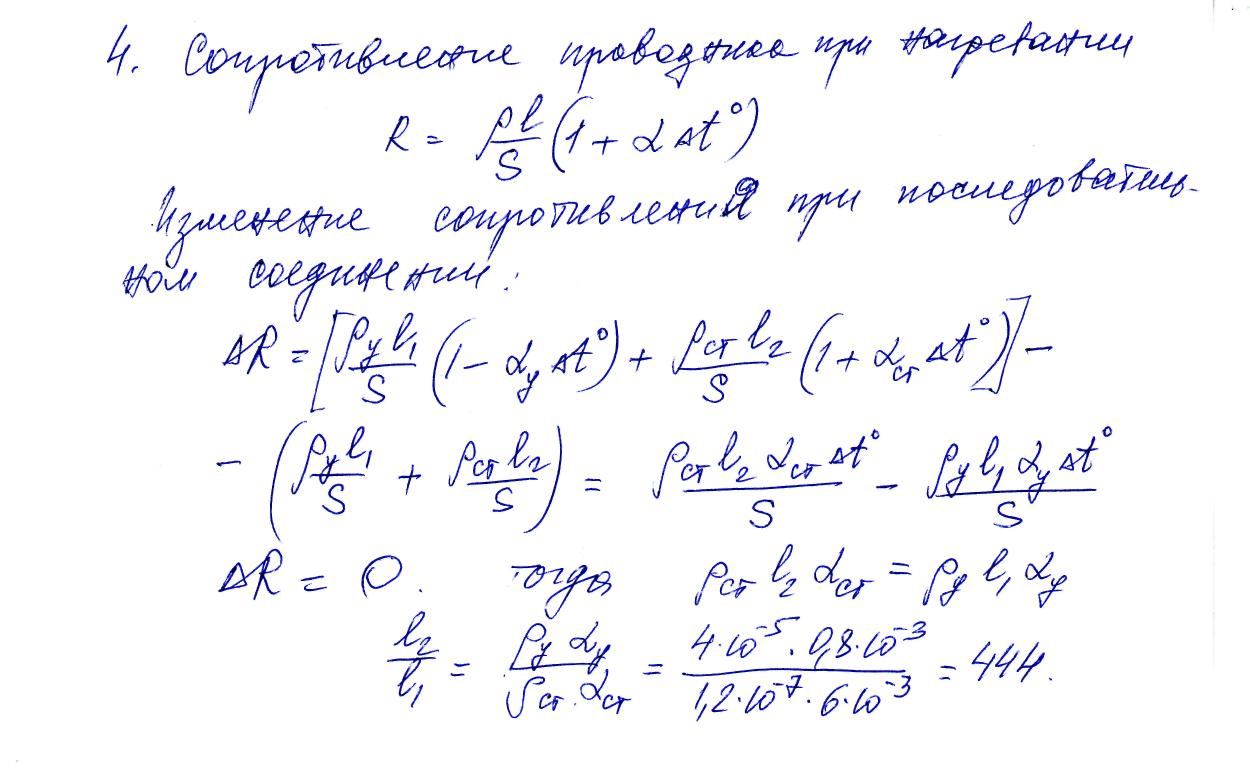 4. Сопротивление проводника при нагревании
R = ρl/S (1 + α Δt°)
Изменение сопротивления при последователь-
ном соединении:
ΔR = [ρу l₁/S (1 − αу Δt°) + ρст l₂/S (1 + αст Δt°)] −
− (ρу l₁/S + ρст l₂/S) = ρст l₂ αст Δt°/S − ρу l₁ αу Δt°/S
ΔR = 0. тогда ρст l₂ αст = ρу l₁ αу
l₂/l₁ = ρу αу/ρст · αст = 4·10⁻⁵ · 0,8·10⁻³/1,2·10⁻⁷ · 6·10⁻³ = 444.